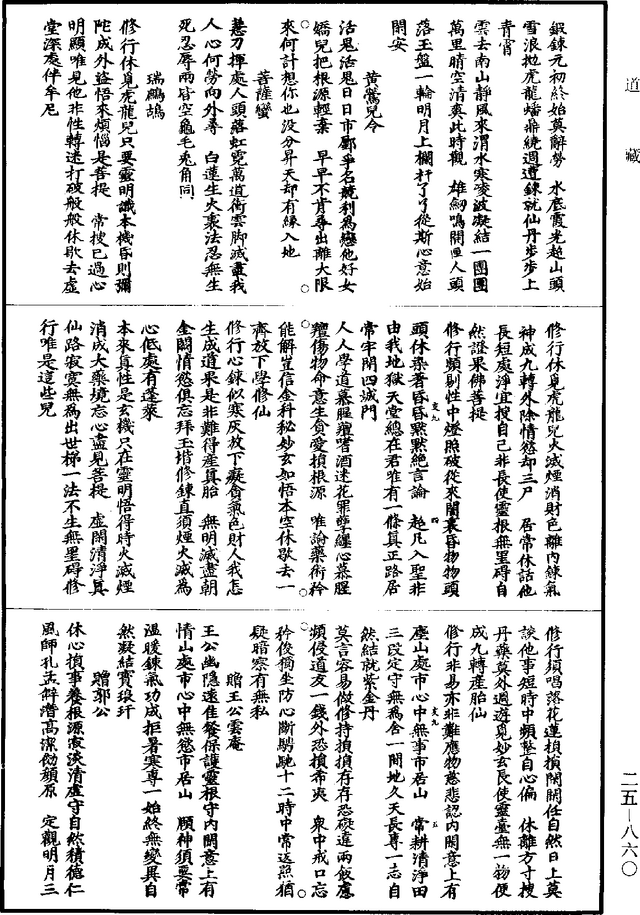 道藏
鍛鍊元初終始莫辭勞　水底霞光超山頭
雪浪拋虎龍蟠鼎繞週遭鍊就仙丹步步上
青霄
雲去南山靜風來渭水寒凌波凝結一團團
萬里晴空清爽此時觀　雄劒鳴開匣人頭
落玉盤一輪明月上欄杆了了從斯心意始
閑安
黃鶯兒令
活鬼活鬼日日市鄽爭名競利為戀他好女
嬌兒把根源輕棄　早早不肯尋出離大限
來何計想你也沒分昇天却有緣入地
菩薩蠻
慧刀揮處人頭落虹霓萬道衝雲脚滅盡我
人心何勞向外尋　白蓮生火裏法忍無生
死忍辱兩皆空龜毛兎角同
瑞鷓鴣
修行休覓虎龍兒只要靈明識本機昏則彌
陀成外盜悟來煩惱是菩提　常搜已過心
明顯唯見他非性轉迷打破般般休歇去虛
堂深處伴牟尼
修行休覓虎龍兒火滅煙消財色離內鍊氣
神成九轉外除情慾却三尸　居常休話他
長短處淨宜搜自己非長使靈根無罣碍自
然證果佛菩提
修行頻剔性中燈照破從來闇裏昏物物頭
頭休染著昏昏默默絕言論　超凡入聖非
由我地獄天堂總在君唯有一條真正路居
常牢閉四誠門
人人學道慕腥羶嗜酒迷花罪孽纏心慕腥
羶傷物命意生貪愛損根源　唯論藥術矜
能解豈信金科秘妙玄如悟本空休歇去一
齊放下學修仙
修行心鍊似寒灰放下癡貪氣色財人我怎
生成道果是非難得産真胎　無明滅盡朝
金闕情慾俱忘拜玉楷修鍊直須煙火滅為
心低處有蓬萊
本來真性是玄機只在靈明悟得時火滅煙
消成大藥境忘心盡見菩提　虛閑清淨真
仙路寂寞無為出世梯一法不生無罣碍修
行唯是這些兒
修行須唱落花蓮損損閑閑任自然日上莫
談他事短時中頻整自心偏　休離方寸搜
丹藥莫外週遊覓妙玄長使靈臺無一物便
成九轉產胎仙
修行非易亦非難應物慈悲認內閑意上有
塵山處市心中無事市居山　常耕清淨田
三段定守無為舍一間地久天長專一志自
然結就紫金丹
莫言容易做修持損損存存恐礙違兩飯應
頻侵道友一錢外恐損希夷　衆中戒口忘
矜俊獨坐防心斷騁馳十二時中常返照猶
疑暗察有無私
贈王公雲庵
王公幽隱遠隹餐保護靈根守內閑意上有
情山處市心中無慾市居山　頤神須要常
溫暖鍊氣功成拒暑寒專一始終無變異自
然凝結寶琅玕
贈郭公
休心損事養根源寂淡清虛守自然積德仁
風師孔孟解讒高潔効顏原　定觀明月三
二五—八六〇